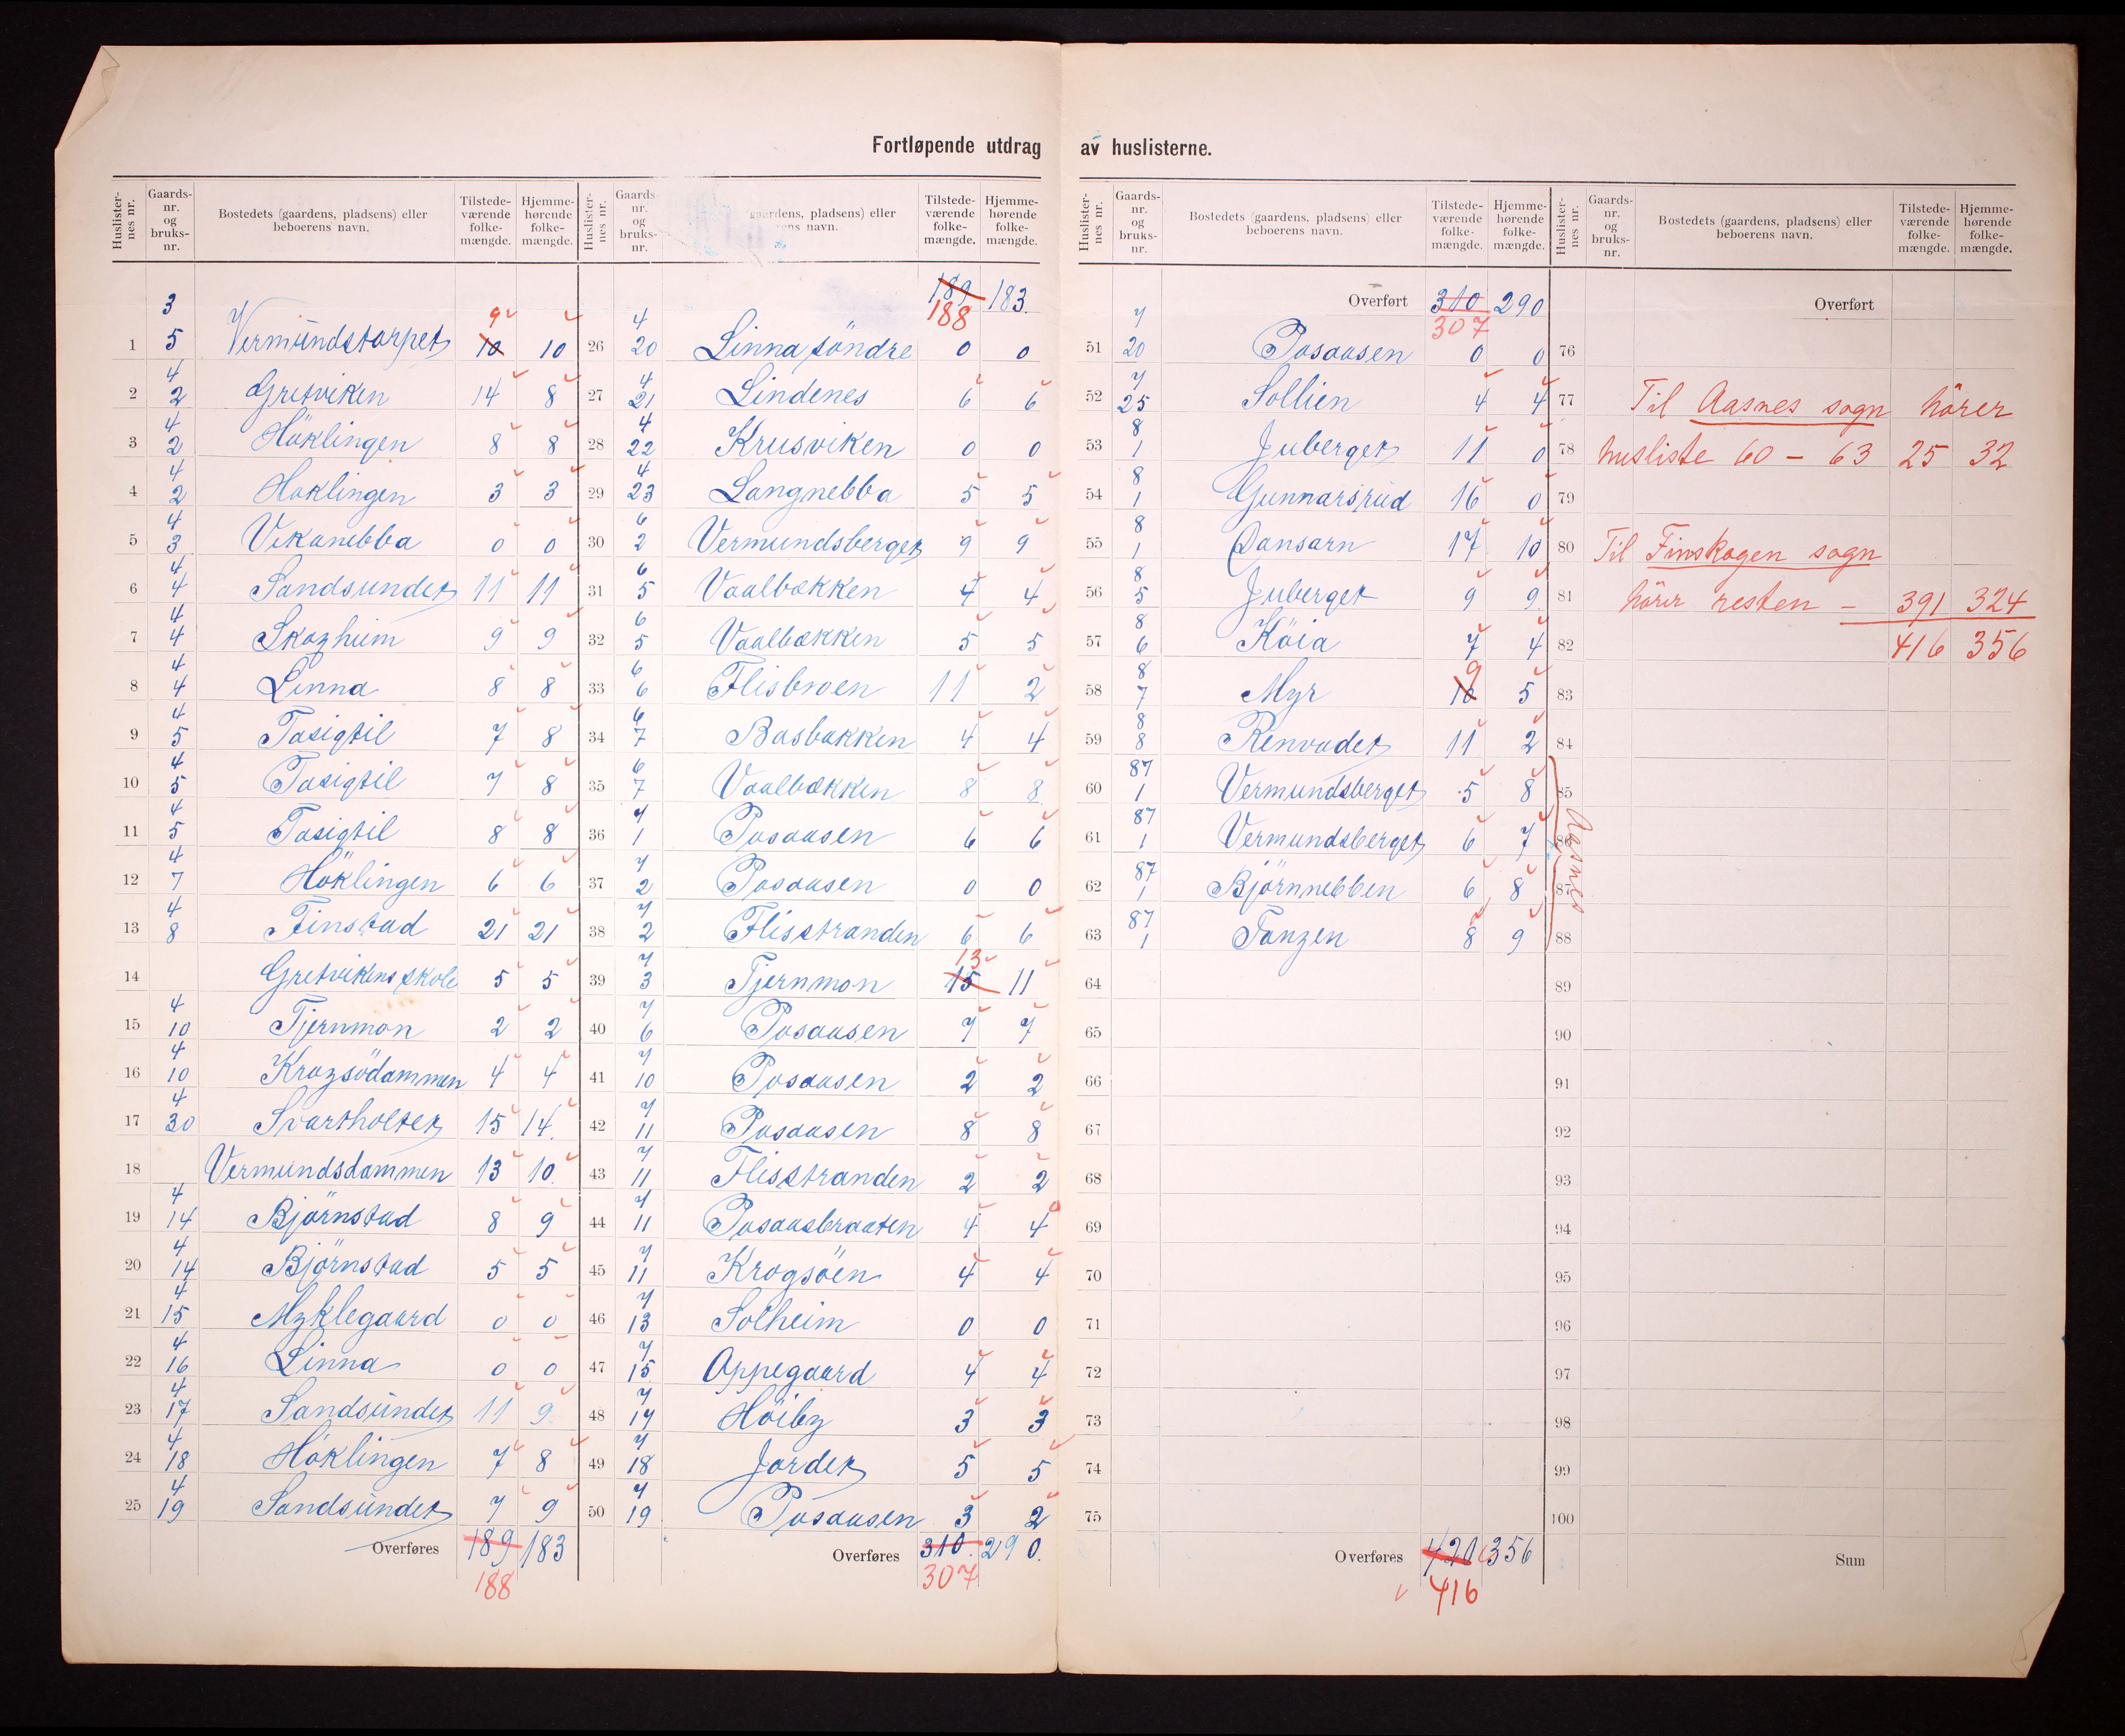 Fortløpende utdrag av huslisterne.
Huslister-nes nr. Gaards-nr. og bruks-nr. Bostedets (gaardens, pladsens) eller beboerens navn. Tilstede-værende folke-mængde. Hjemme-hørende folke-mængde.
1 3 5 Vermundstorpet 10 9 10
2 4 2 Gretviken 14 8
3 4 2 Höklingen 8 8
4 4 2 Höklingen 3 3
5 4 3 Vikanebba 0 0
6 4 4 Sandsundet 11 11
7 4 4 Skogheim 9 9
8 4 4 Linna 8 8
9 4 5 Tasigtil 7 8
10 4 5 Tasigtil 7 8
11 4 5 Tasigtil 8 8
12 4 7 Höklingen 6 6
13 4 8 Finstad 21 21
14 Gretvikens skole 5 5
15 4 10 Tjernmon 2 2
16 4 10 Krogsödammen 4 4
17 4 30 Svartholtet 15 14
18 Vermundsdammen 13 10
19 4 14 Björnstad 8 9
20 4 14 Björnstad 5 5
21 4 15 Myklegaard 0 0
22 4 16 Linna 0 0
23 4 17 Sandsundet 11 9
24 4 18 Höklingen 7 8
25 4 19 Sandsundet 7 9
Overføres 189 183
188
Huslister-nes nr. Gaards-nr. og bruks-nr. gaardens, pladsens) eller navn. Tilstede-værende folke-mængde. Hjemme-hørende folke-mængde.
189 183
188
26 4 20 Linna söndre 0 0
27 4 21 Lindenes 6 6
28 4 22 Krusviken 0 0
29 4 23 Langnebba 5 5
30 6 2 Vermundsberget 9 9
31 6 5 Vaalbækken 4 4
32 6 5 Vaalbækken 5 5
33 6 6 Flisbroen 11 2
34 6 7 Basbakken 4 4
35 6 7 Vaalbækken 8 8
36 7 1 Posaasen 6 6
37 7 2 Posaasen 0 0
38 7 2 Flisstranden 6 6
39 7 3 Tjernmon 15 13 11
40 7 6 Posaasen 7 7
41 7 10 Posaasen 2 2
42 7 11 Posaasen 8 8
43 7 11 Flisstranden 2 2
44 7 11 Posaasbraaten 4 4
45 7 11 Krogsöen 4 4
46 7 13 Solheim 0 0
47 7 15 Oppegaard 4 4
48 7 17 Höiby 3 3
49 7 18 Jordet 5 5
50 7 19 Posaasen 3 2
Overføres 310 290
307
Huslister-nes nr. Gaards-nr. og bruks-nr. Bostedets (gaardens, pladsens) eller beboerens navn. Tilstede-værende folke-mængde. Hjemme-hørende folke-mængde.
Overført 310 290
307
51 7 20 Posaasen 0 0
52 7 25 Sollien 4 4
53 8 1 Juberget 11 0
54 8 1 Gunnarsrud 16 0
55 8 1 Dansarn 17 10
56 8 5 Juberget 9 9
57 8 6 Köia 7 4
58 8 7 Myr 10 9 5
59 8 8 Renvadet 11 2
60 87 1 Vermundsberget 5 8
61 87 1 Vermundsberget 6 7
62 87 1 Björnnebben 6 8
63 87 1 Tangen 8 9
64
65
66
67
68
69
70
71
72
73
74
75
Overføres 420 356
416
Huslister-nes nr. Gaards-nr. og bruks-nr. Bostedets (gaardens, pladsens) eller beboerens navn. Tilstede-værende folke-mængde. Hjemme-hørende folke-mængde.
Overført
76
77 Til Aasnes sogn hörer
78 husliste 60 – 63 25 32
79
80 Til Finskogen sogn
81 hörer resten – 391 324
82 416 356
83
84
85
86
Aasnes
87
88
89
90
91
92
93
94
95
96
97
98
99
100
Sum